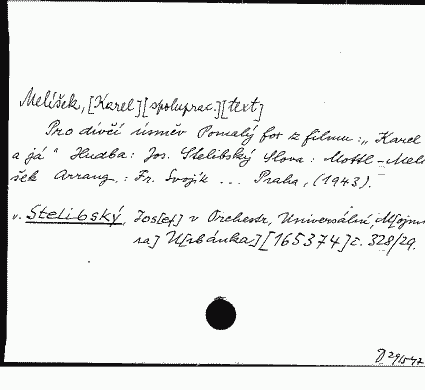 Melíšek, [Karel][spoluprac.][text]
Pro dívčí úsměv Pomalý fox z filmu: „Karel
a já" Hudba: Jos. Stelibský Slova: Mottl-Melí-
šek Arrang.: Fr. Svojík ... Praha, (1943).
v. Stelibský, Jos[ef] v Orchestr, Universální, M[ojmí-
ra] U[rbánka] [165374] č. 328/29.